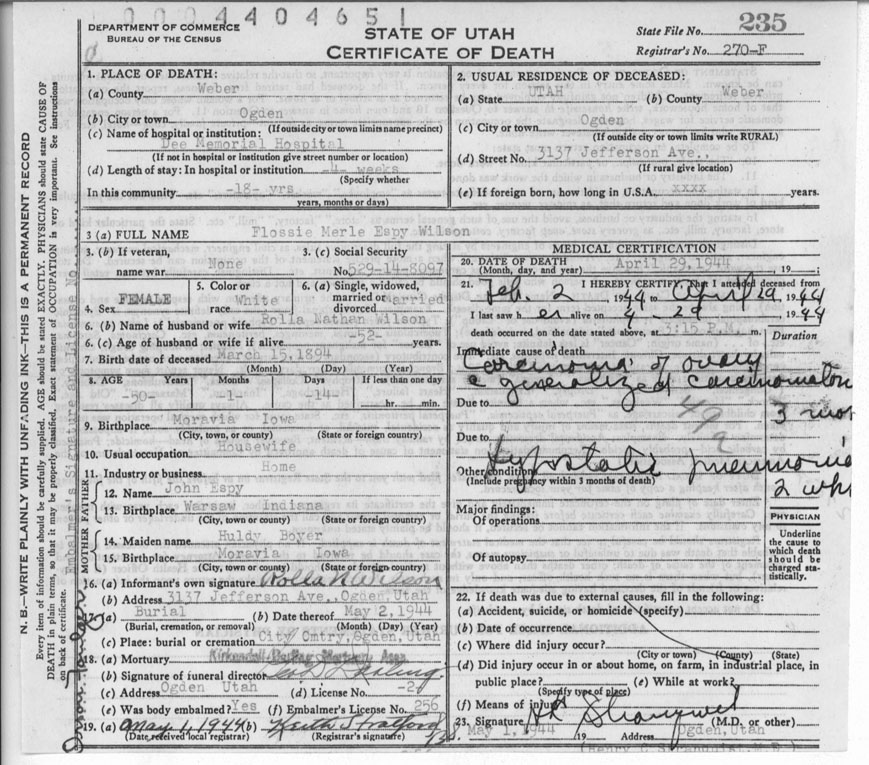 0004404651
DEPARTMENT OF COMMERCE
BUREAU OF THE CENSUS
STATE OF UTAH
CERTIFICATE OF DEATH
State File No. 235
Registrar's No. 270-F
N. B.—WRITE PLAINLY WITH UNFADING INK—THIS IS A PERMANENT RECORD
Every item of information should be carefully supplied. AGE should be stated EXACTLY. PHYSICIANS should state CAUSE OF
DEATH in plain terms, so that it may be properly classified. Exact statement of OCCUPATION is very important. See instructions
on back of certificate.
Embalmer's Signature and License No.
1. PLACE OF DEATH:
(a) County Weber
(b) City or town Ogden
(If outside city or town limits name precinct)
(c) Name of hospital or institution:
Dee Memorial Hospital
(If not in hospital or institution give street number or location)
(d) Length of stay: In hospital or institution -4- weeks
(Specify whether
In this community -18- yrs
years, months or days)
2. USUAL RESIDENCE OF DECEASED:
(a) State UTAH (b) County Weber
(c) City or town Ogden
(If outside city or town limits write RURAL)
(d) Street No. 3137 Jefferson Ave.,
(If rural give location)
(e) If foreign born, how long in U.S.A. xxxx years.
3 (a) FULL NAME Flossie Merle Espy Wilson
3. (b) If veteran,
name war None
3. (c) Social Security
No. 529-14-8097
4. Sex FEMALE
5. Color or
race White
6. (a) Single, widowed,
married or
divorced Married
6. (b) Name of husband or wife Rolla Nathan Wilson
6. (c) Age of husband or wife if alive -52- years.
7. Birth date of deceased March 15, 1894
(Month) (Day) (Year)
8. AGE Years Months Days If less than one day
-50- -1- -14- hr. min.
9. Birthplace Moravia Iowa
(City, town, or county) (State or foreign country)
10. Usual occupation Housewife
11. Industry or business Home
FATHER
12. Name John Espy
13. Birthplace Warsaw Indiana
(City, town or county) (State or foreign country)
MOTHER
14. Maiden name Huldy Boyer
15. Birthplace Moravia Iowa
(City, town or county) (State or foreign country)
16. (a) Informant's own signature Rolla N Wilson
(b) Address 3137 Jefferson Ave., Ogden, Utah
17. (a) Burial (b) Date thereof May 2, 1944
(Burial, cremation, or removal) (Month) (Day) (Year)
(c) Place: burial or cremation City Cmtry, Ogden, Utah
18. (a) Mortuary
(b) Signature of funeral director
(c) Address Ogden Utah (d) License No. -2-
(e) Was body embalmed? Yes (f) Embalmer's License No. 256
19. (a) May 1, 1944 (b) Keith Stratford
(Date received local registrar) (Registrar's signature)
MEDICAL CERTIFICATION
20. DATE OF DEATH April 29, 1944
(Month, day, and year) 19
21. I HEREBY CERTIFY, That I attended deceased from
Feb. 2 1944 to April 29, 1944
I last saw her alive on 4-29 1944
death occurred on the date stated above, at 3:15 P.M. m.
Duration
Immediate cause of death
Carcinoma of ovary
c generalized carcinomatosis
Due to 3 mos
Due to
Hypostatic pneumonia
Other conditions
(Include pregnancy within 3 months of death)
2 wks
Major findings:
Of operations
Of autopsy
PHYSICIAN
Underline
the cause to
which death
should be
charged sta-
tistically.
22. If death was due to external causes, fill in the following:
(a) Accident, suicide, or homicide (specify)
(b) Date of occurrence
(c) Where did injury occur?
(City or town) (County) (State)
(d) Did injury occur in or about home, on farm, in industrial place, in
public place? (e) While at work?
(Specify type of place)
(f) Means of injury
23. Signature (M.D. or other)
May 1, 1944 19 Address Ogden, Utah